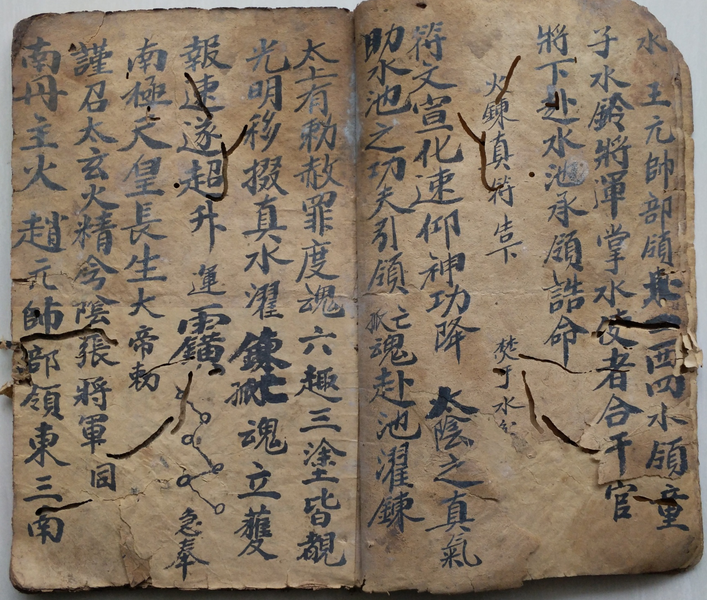 水 王元帥部領北一西四水領童
子水鈴將渾掌水使者合干官
將下赴水池承領誥命
火鍊真符告下 焚于水公
符文宣化速仰神功降 太陰之真氣
助水池之功夫引領亡孤魂赴池濯鍊
太上有勅赦罪度魂六趣三塗皆覩
光明移掇真水濯鍊孤亡魂立蒦
報速遂超升 運 急奉
南極天皇長生大帝勅
謹召太玄火精兮陰張將軍同
南丹主火 趙元帥部領東三南